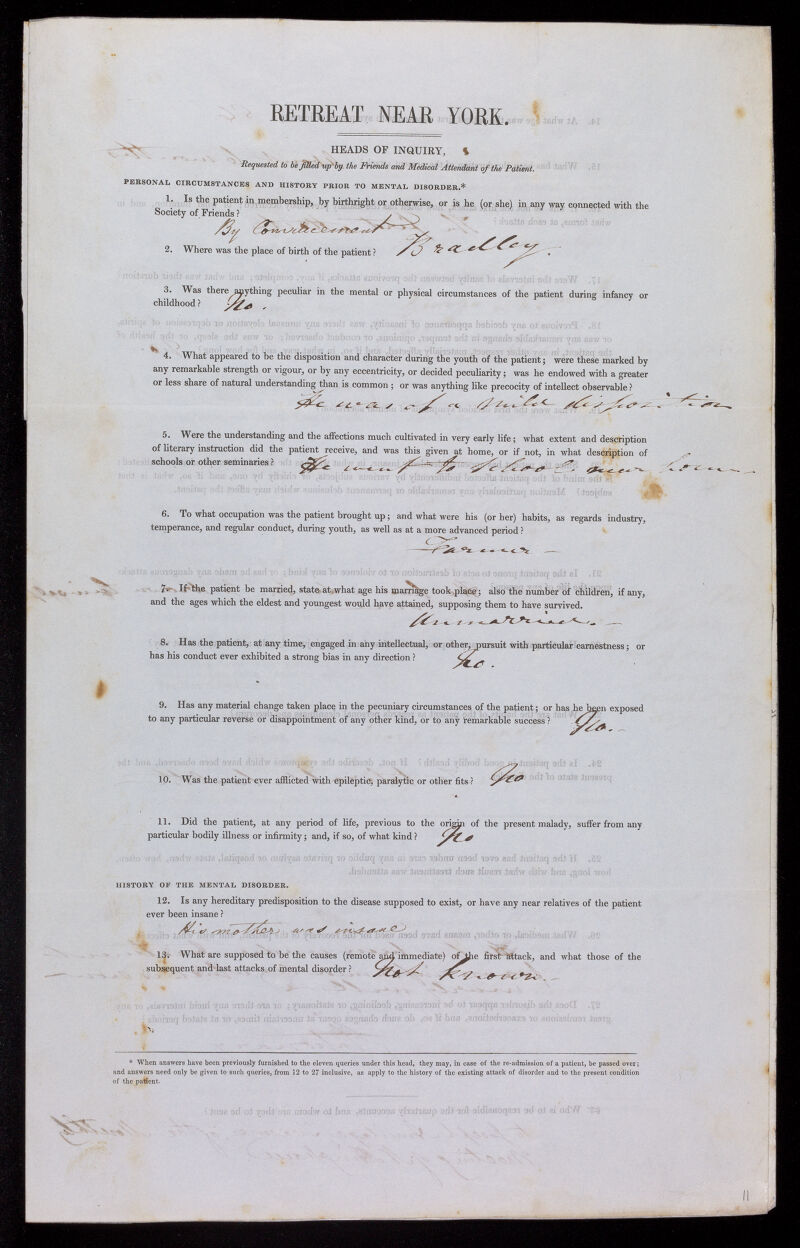 RETREAT NEAR YORK.
HEADS OF INQUIRY,
Requested to be filled up by the Friends and Medical Attendant of the Patient.
PERSONAL CIRCUMSTANCES AND HISTORY PRIOR TO MENTAL DISORDER.*
1. Is the patient in membership, by birthright or otherwise, or is he (or she) in any way connected with the
Society of Friends?
By Convincement
2. Where was the place of birth of the patient? Bradley.
3. Was there anything peculiar in the mental or physical circumstances of the patient during infancy or
childhood? No.
4. What appeared to be the disposition and character during the youth of the patient; were these marked by
any remarkable strength or vigour, or by any eccentricity, or decided peculiarity; was he endowed with a greater
or less share of natural understanding than is common; or was anything like precocity of intellect observable?
He was of a mild disposition
5. Were the understanding and the affections much cultivated in very early life; what extent and description
of literary instruction did the patient receive, and was this given at home, or if not, in what description of
schools or other seminaries? He went to School near home
6. To what occupation was the patient brought up; and what were his (or her) habits, as regards industry,
temperance, and regular conduct, during youth, as well as at a more advanced period?
Farmer –
7. If the patient be married, state at what age his marriage took place; also the number of children, if any,
and the ages which the eldest and youngest would have attained, supposing them to have survived.
Unmarried. –
8. Has the patient, at any time, engaged in any intellectual, or other, pursuit with particular earnestness; or
has his conduct ever exhibited a strong bias in any direction? No.
9. Has any material change taken place in the pecuniary circumstances of the patient; or has he been exposed
to any particular reverse or disappointment of any other kind, or to any remarkable success? No. –
10. Was the patient ever afflicted with epileptic, paralytic or other fits? No
11. Did the patient, at any period of life, previous to the origin of the present malady, suffer from any
particular bodily illness or infirmity; and, if so, of what kind? No
HISTORY OF THE MENTAL DISORDER.
12. Is any hereditary predisposition to the disease supposed to exist, or have any near relatives of the patient
ever been insane?
His mother was insane
13. What are supposed to be the causes (remote and immediate) of the first attack, and what those of the
subsequent and last attacks of mental disorder? Not known. –
* When answers have been previously furnished to the eleven queries under this head, they may, in case of the re-admission of a patient, be passed over;
and answers need only be given to such queries, from 12 to 27 inclusive, as apply to the history of the existing attack of disorder and to the present condition
of the patient.
11